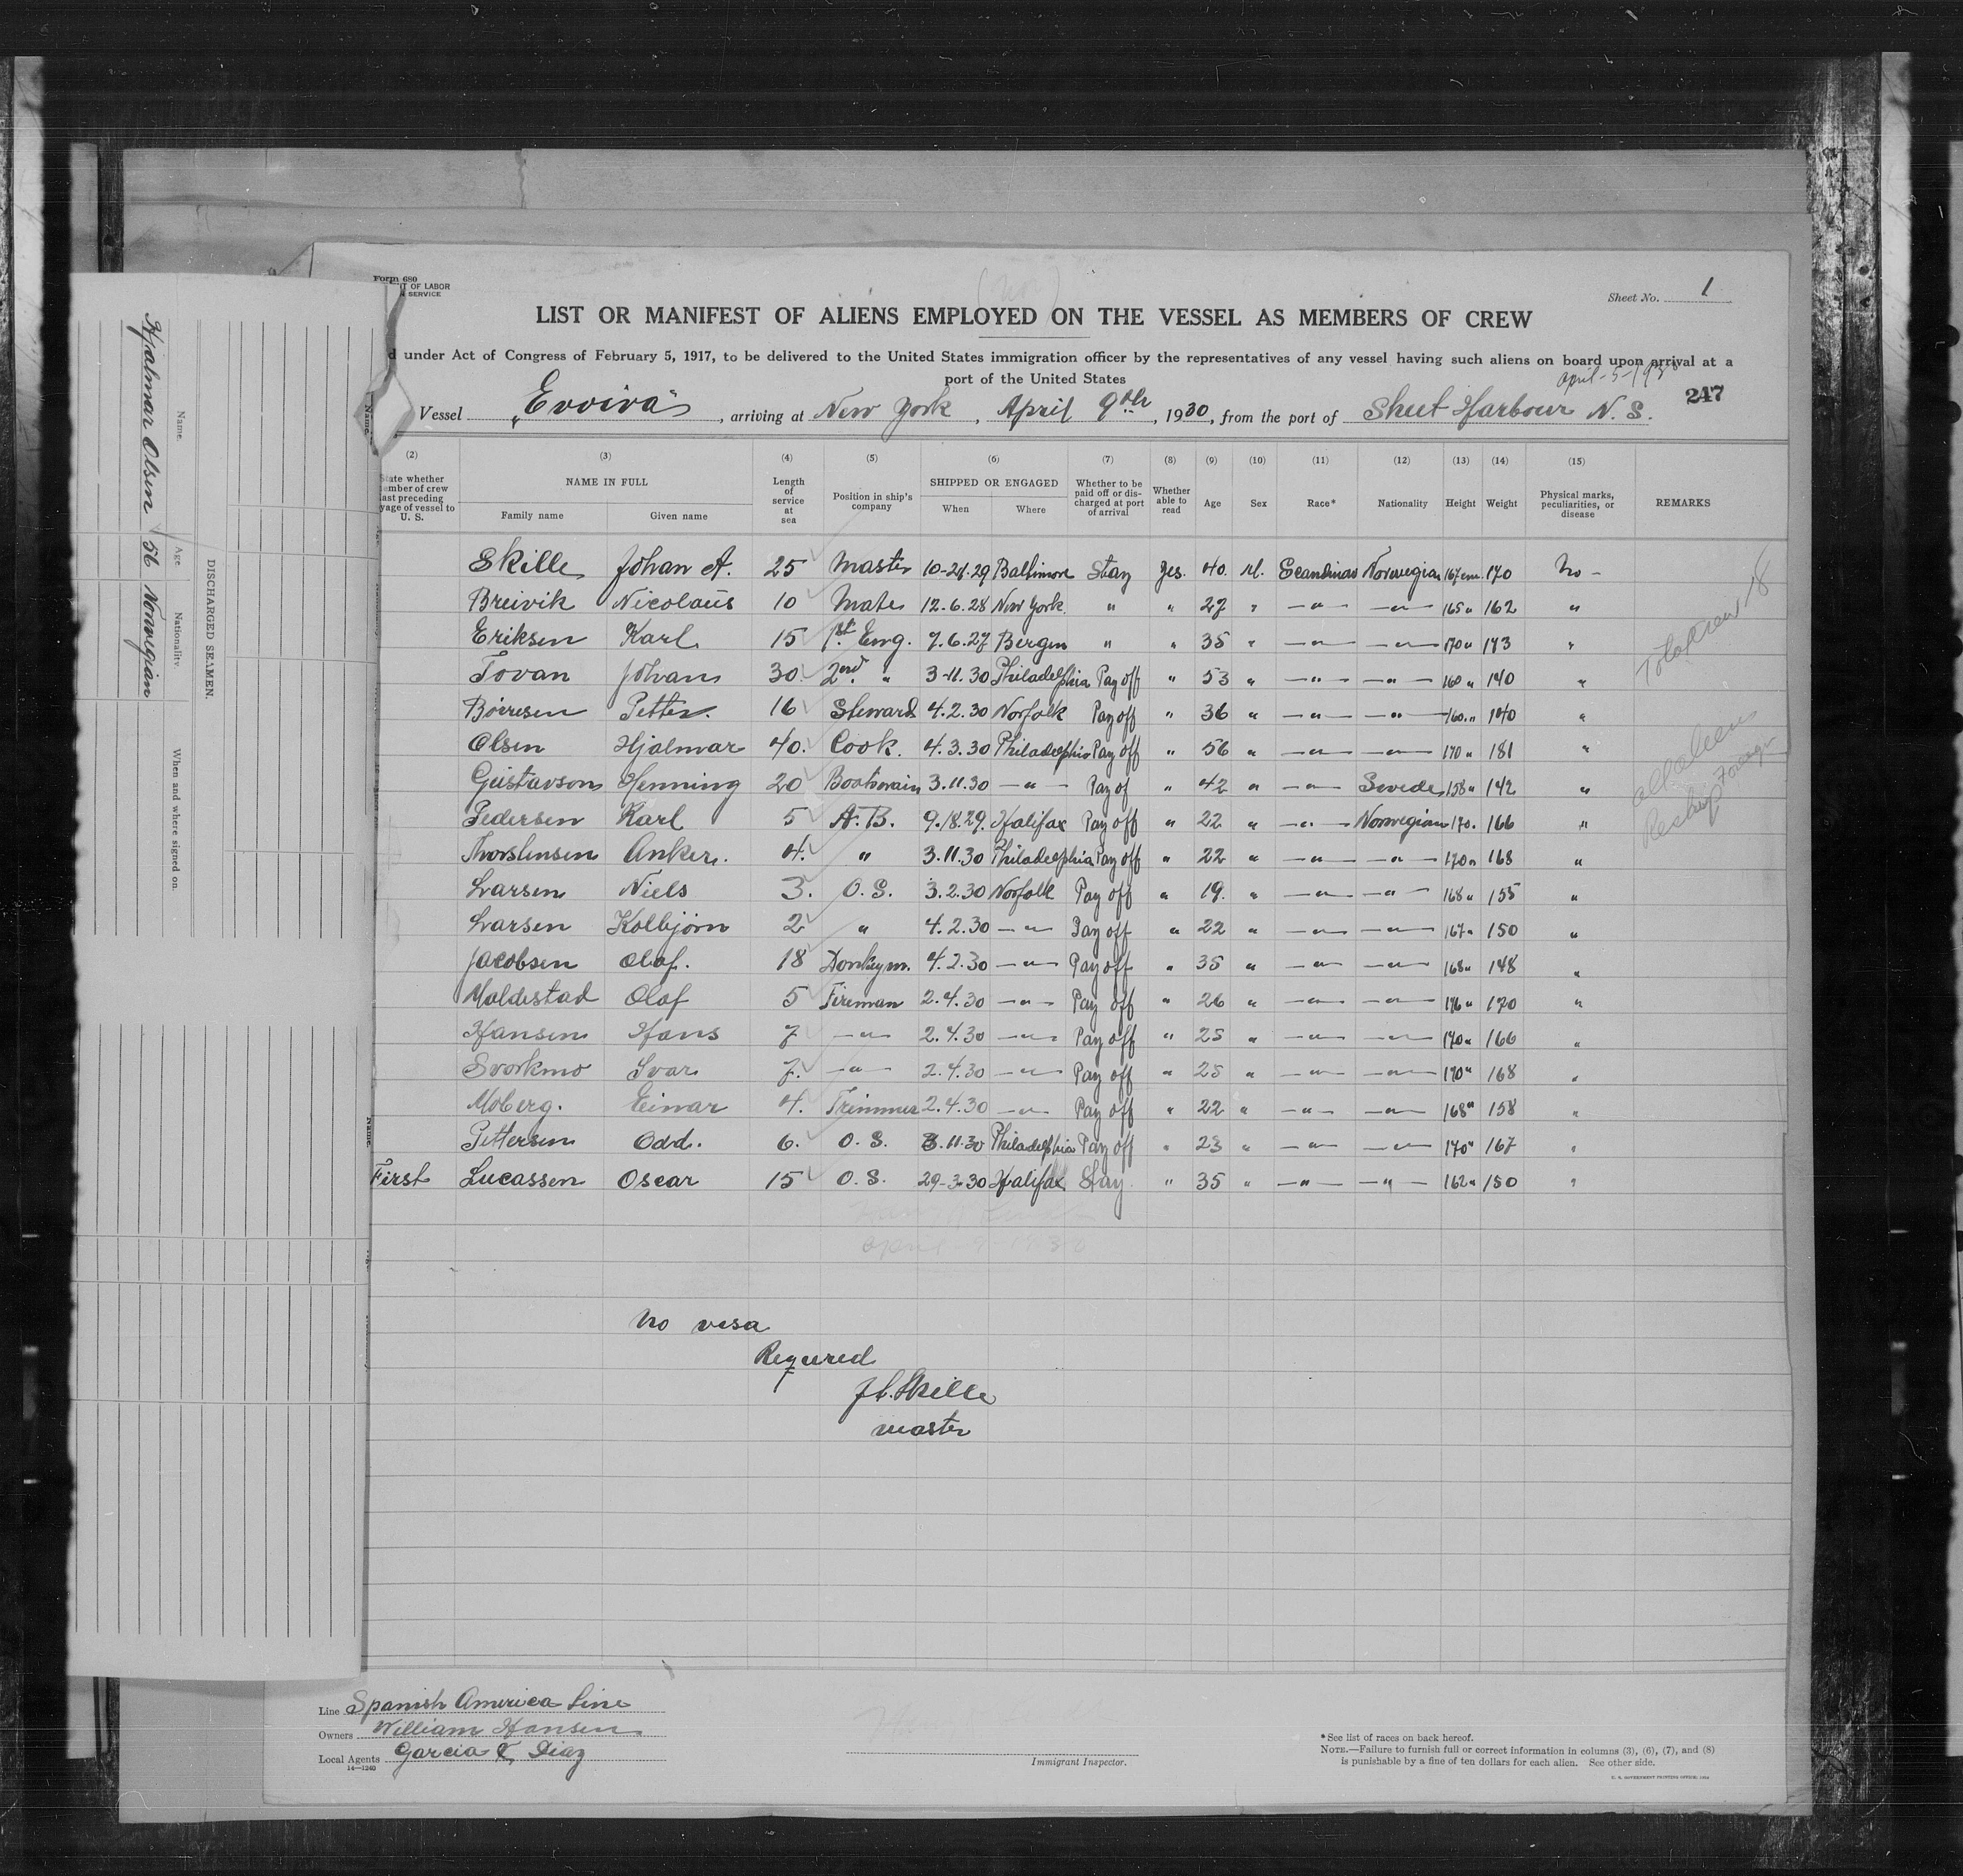 Form 680
T OF LABOR
N SERVICE
Sheet No. 1
LIST OR MANIFEST OF ALIENS EMPLOYED ON THE VESSEL AS MEMBERS OF CREW
d under Act of Congress of February 5, 1917, to be delivered to the United States immigration officer by the representatives of any vessel having such aliens on board upon arrival at a
port of the United States
April-5-193
247
Vessel „Evviva", arriving at New York, April 9th, 1930, from the port of Sheet Harbour N. S.
(2) (3) (4) (5) (6) (7) (8) (9) (10) (11) (12) (13) (14) (15)
State whether member of crew last preceding voyage of vessel to U. S. NAME IN FULL Family name Given name Length of service at sea Position in ship's company SHIPPED OR ENGAGED When Where Whether to be paid off or discharged at port of arrival Whether able to read Age Sex Race* Nationality Height Weight Physical marks, peculiarities, or disease REMARKS
Skille Johan A. 25 Master 10-21-29 Baltimore Stay Yes. 40. M. Scandinav Norwegian 167 cm. 170 No -
Breivik Nicolaus 10 Mate 12.6.28 New York. " " 27 " —"— —"— 165 " 162 "
Eriksen Karl 15 1st Eng. 7.6.27 Bergen " " 35 " —"— —"— 170 " 173 "
Tovan Johan 30. 2nd " 3-11.30 Philadelphia Pay off " 53 " —"— —"— 160 " 140 "
Børresen Petter. 16 Steward 4.2.30 Norfolk Pay off " 36 " —"— —"— 160. " 140 "
Olsen Hjalmar 40. Cook. 4.3.30 Philadelphia Pay off " 56 " —"— —"— 170 " 181 "
Gustavson Henning 20 Boatswain 3.11.30 —"— Pay of " 42 " —"— Swede 158 " 142 "
Pedersen Karl 5 A.B. 9.18.29. Halifax Pay off " 22 " —"— Norwegian 170. 166 "
Thorstensen Anker. 4. " 3.11.30 Philadelphia Pay off " 22 " —"— —"— 170 " 168 "
Larsen Niels 3. O.S. 3.2.30 Norfolk Pay off " 19. " —"— —"— 168 " 155 "
Larsen Kolbjorn 2 " 4.2.30 —"— Pay off " 22 " —"— —"— 167 " 150 "
Jacobsen Olaf. 18 Donkeym. 4.2.30 —"— Pay off " 35 " —"— —"— 168 " 148 "
Moldestad Olaf 5 Fireman 2.4.30 —"— Pay off " 26 " —"— —"— 176 " 170 "
Hansen Hans 7 —"— 2.4.30 —"— Pay off " 25 " —"— —"— 170 " 166 "
Svorkmo Ivar 7. —"— 2.4.30 —"— Pay off " 25 " —"— —"— 170 " 168 "
Moberg. Einar 4. Trimmer 2.4.30 —"— Pay off " 22 " —"— —"— 168 " 158 "
Pettersen Odd. 6. O.S. 3.11.30 Philadelphia Pay off " 23 " —"— —"— 170 " 167 "
First Lucassen Oscar 15 O.S. 29-3-30 Halifax Stay. " 35 " —"— —"— 162 " 150 "
Total Crew 18
all aliens
Reship Foreign
April 9 1930
No visa
Requred
J. A. Skille
master
Line Spanish America Line
Owners William Hansen
Local Agents Garcia & Diaz
14—1240
Immigrant Inspector.
*See list of races on back hereof.
NOTE.—Failure to furnish full or correct information in columns (3), (6), (7), and (8)
is punishable by a fine of ten dollars for each alien. See other side.
DISCHARGED SEAMEN.
Name. Age Nationality When and where signed on.
Hjalmar Olsen 56 Norwegian